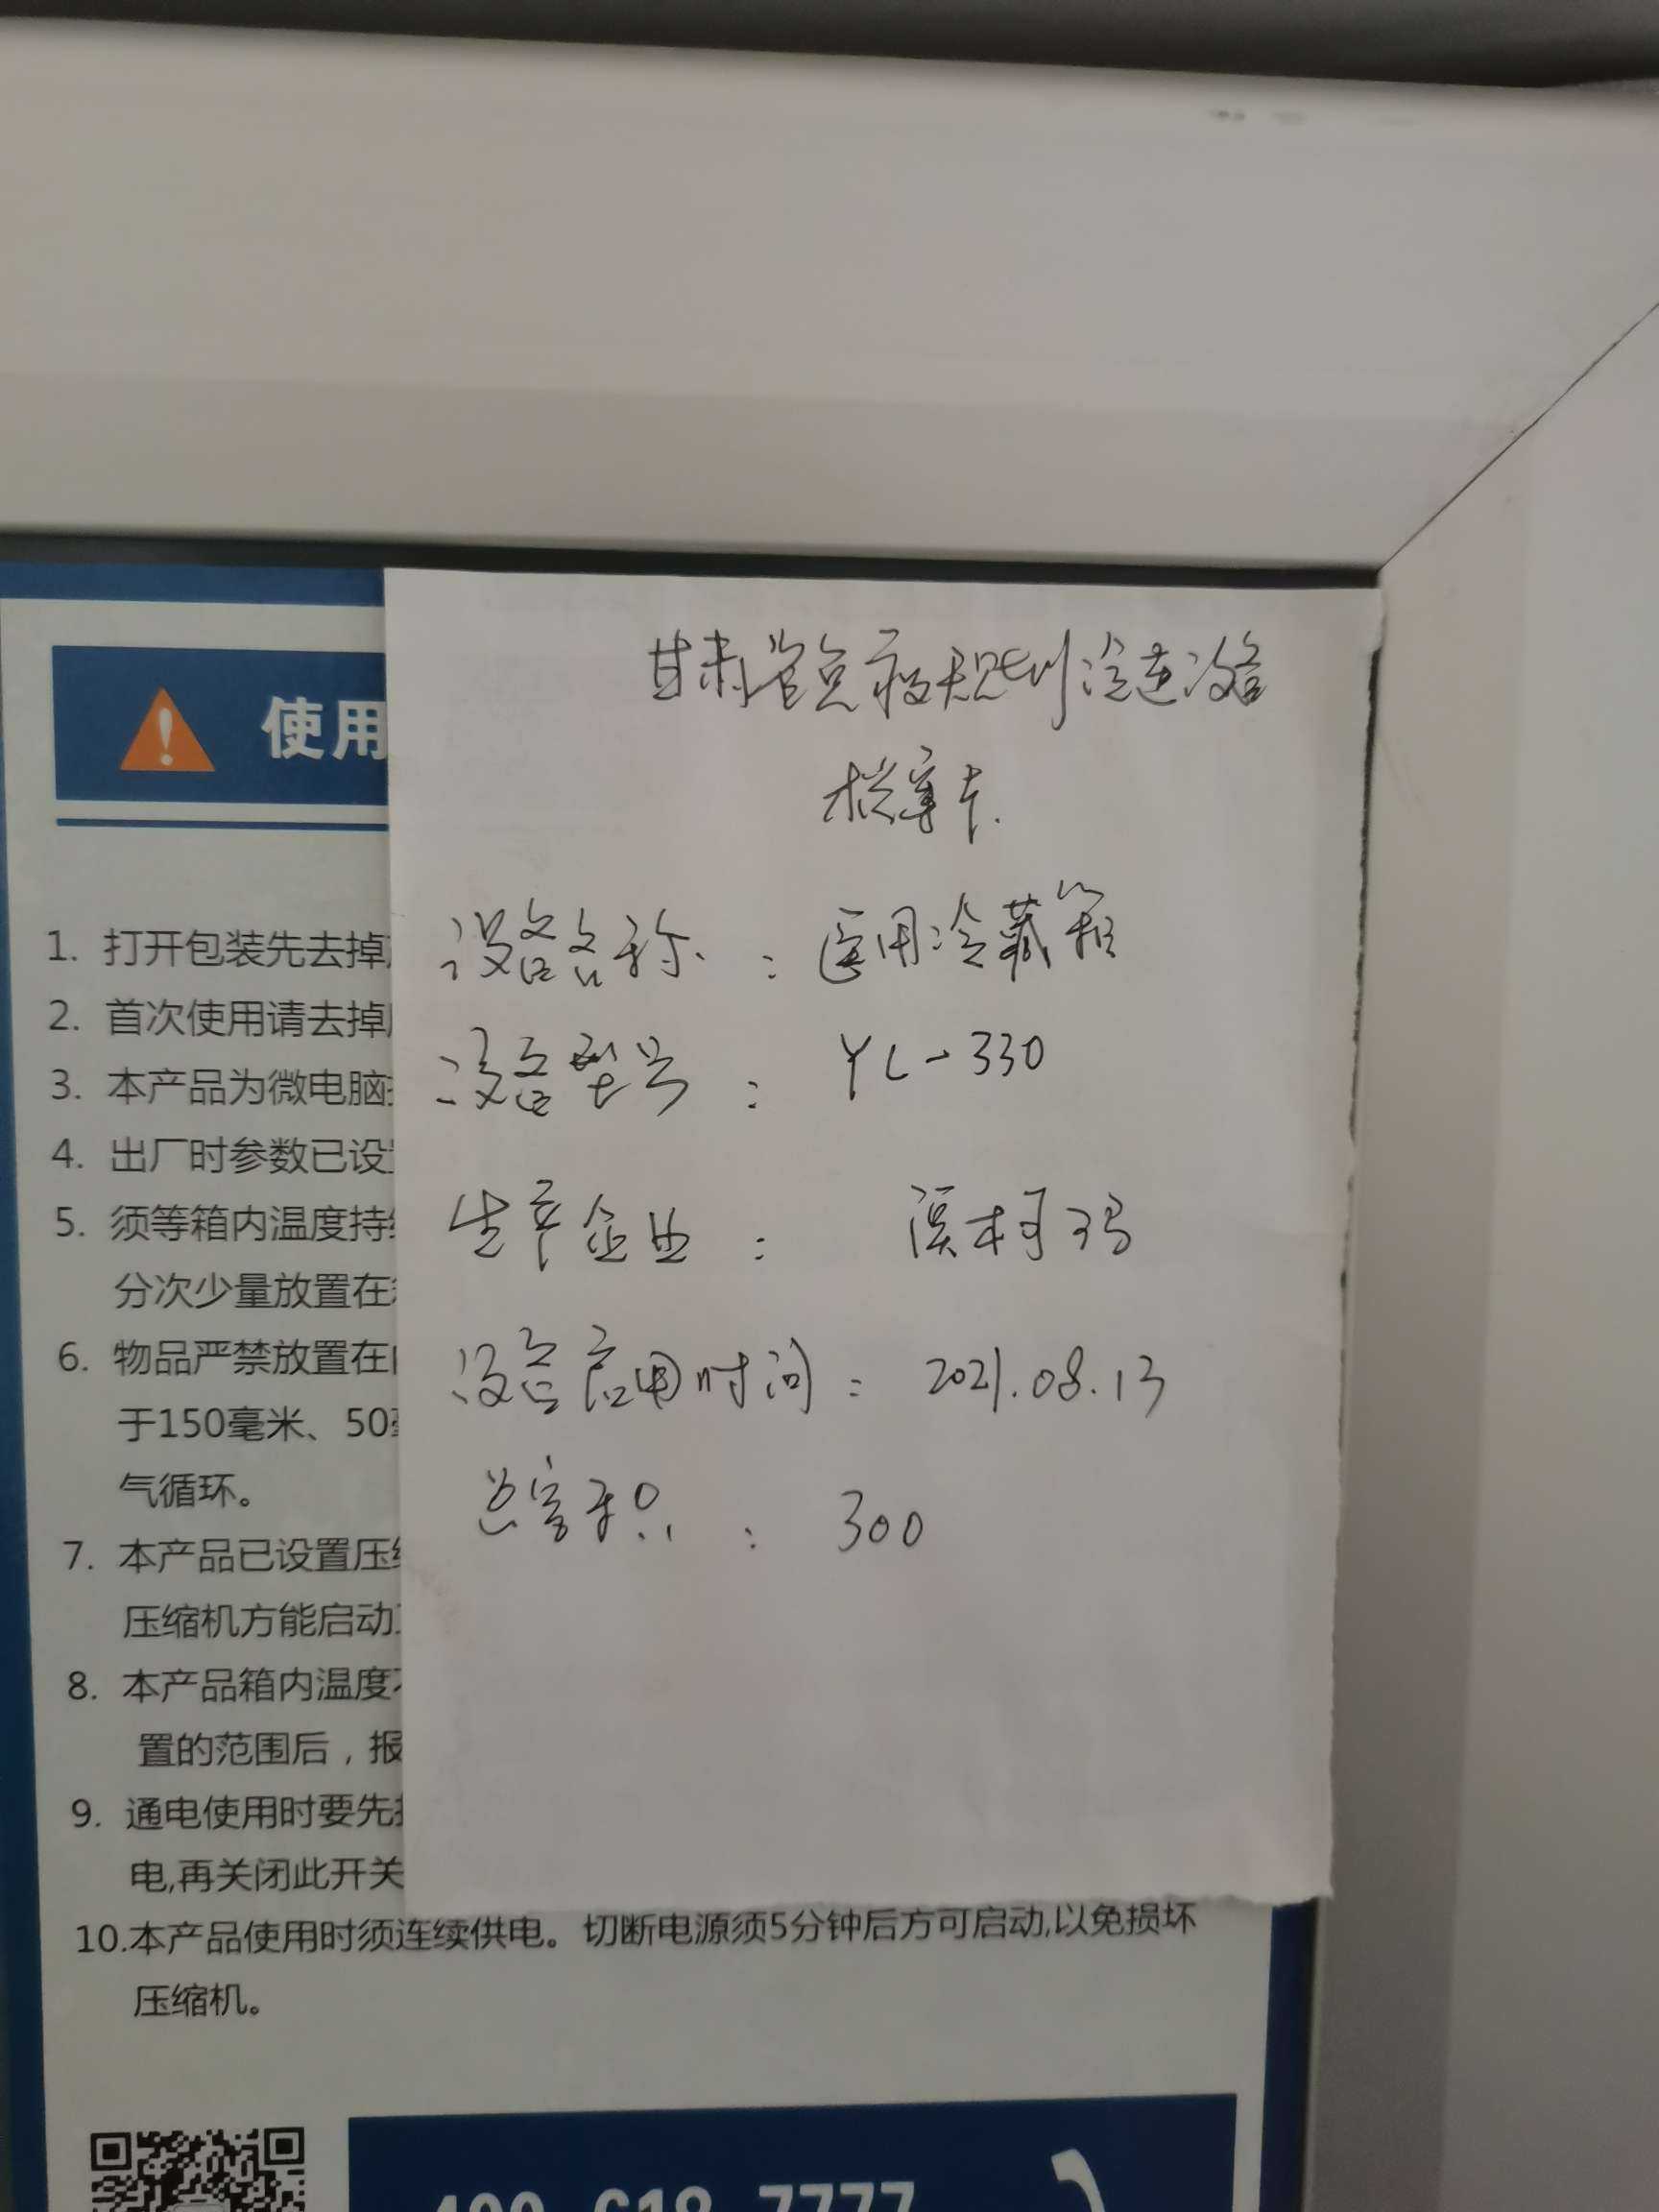 使用
1. 打开包装先去掉
2. 首次使用请去掉
3. 本产品为微电脑
4. 出厂时参数已设
5. 须等箱内温度持
分次少量放置在
6. 物品严禁放置在
于150毫米、50
气循环。
7. 本产品已设置压
压缩机方能启动
8. 本产品箱内温度
置的范围后，报
9. 通电使用时要先
电,再关闭此开关
10.本产品使用时须连续供电。切断电源须5分钟后方可启动,以免损坏
压缩机。
甘肃省免疫规划冷连设备
档案卡.
设备名称：医用冷藏箱
设备型号：YC-330
生产企业：溪村玛
设备启用时间：2021.08.13
总容积：300
400 618 7777